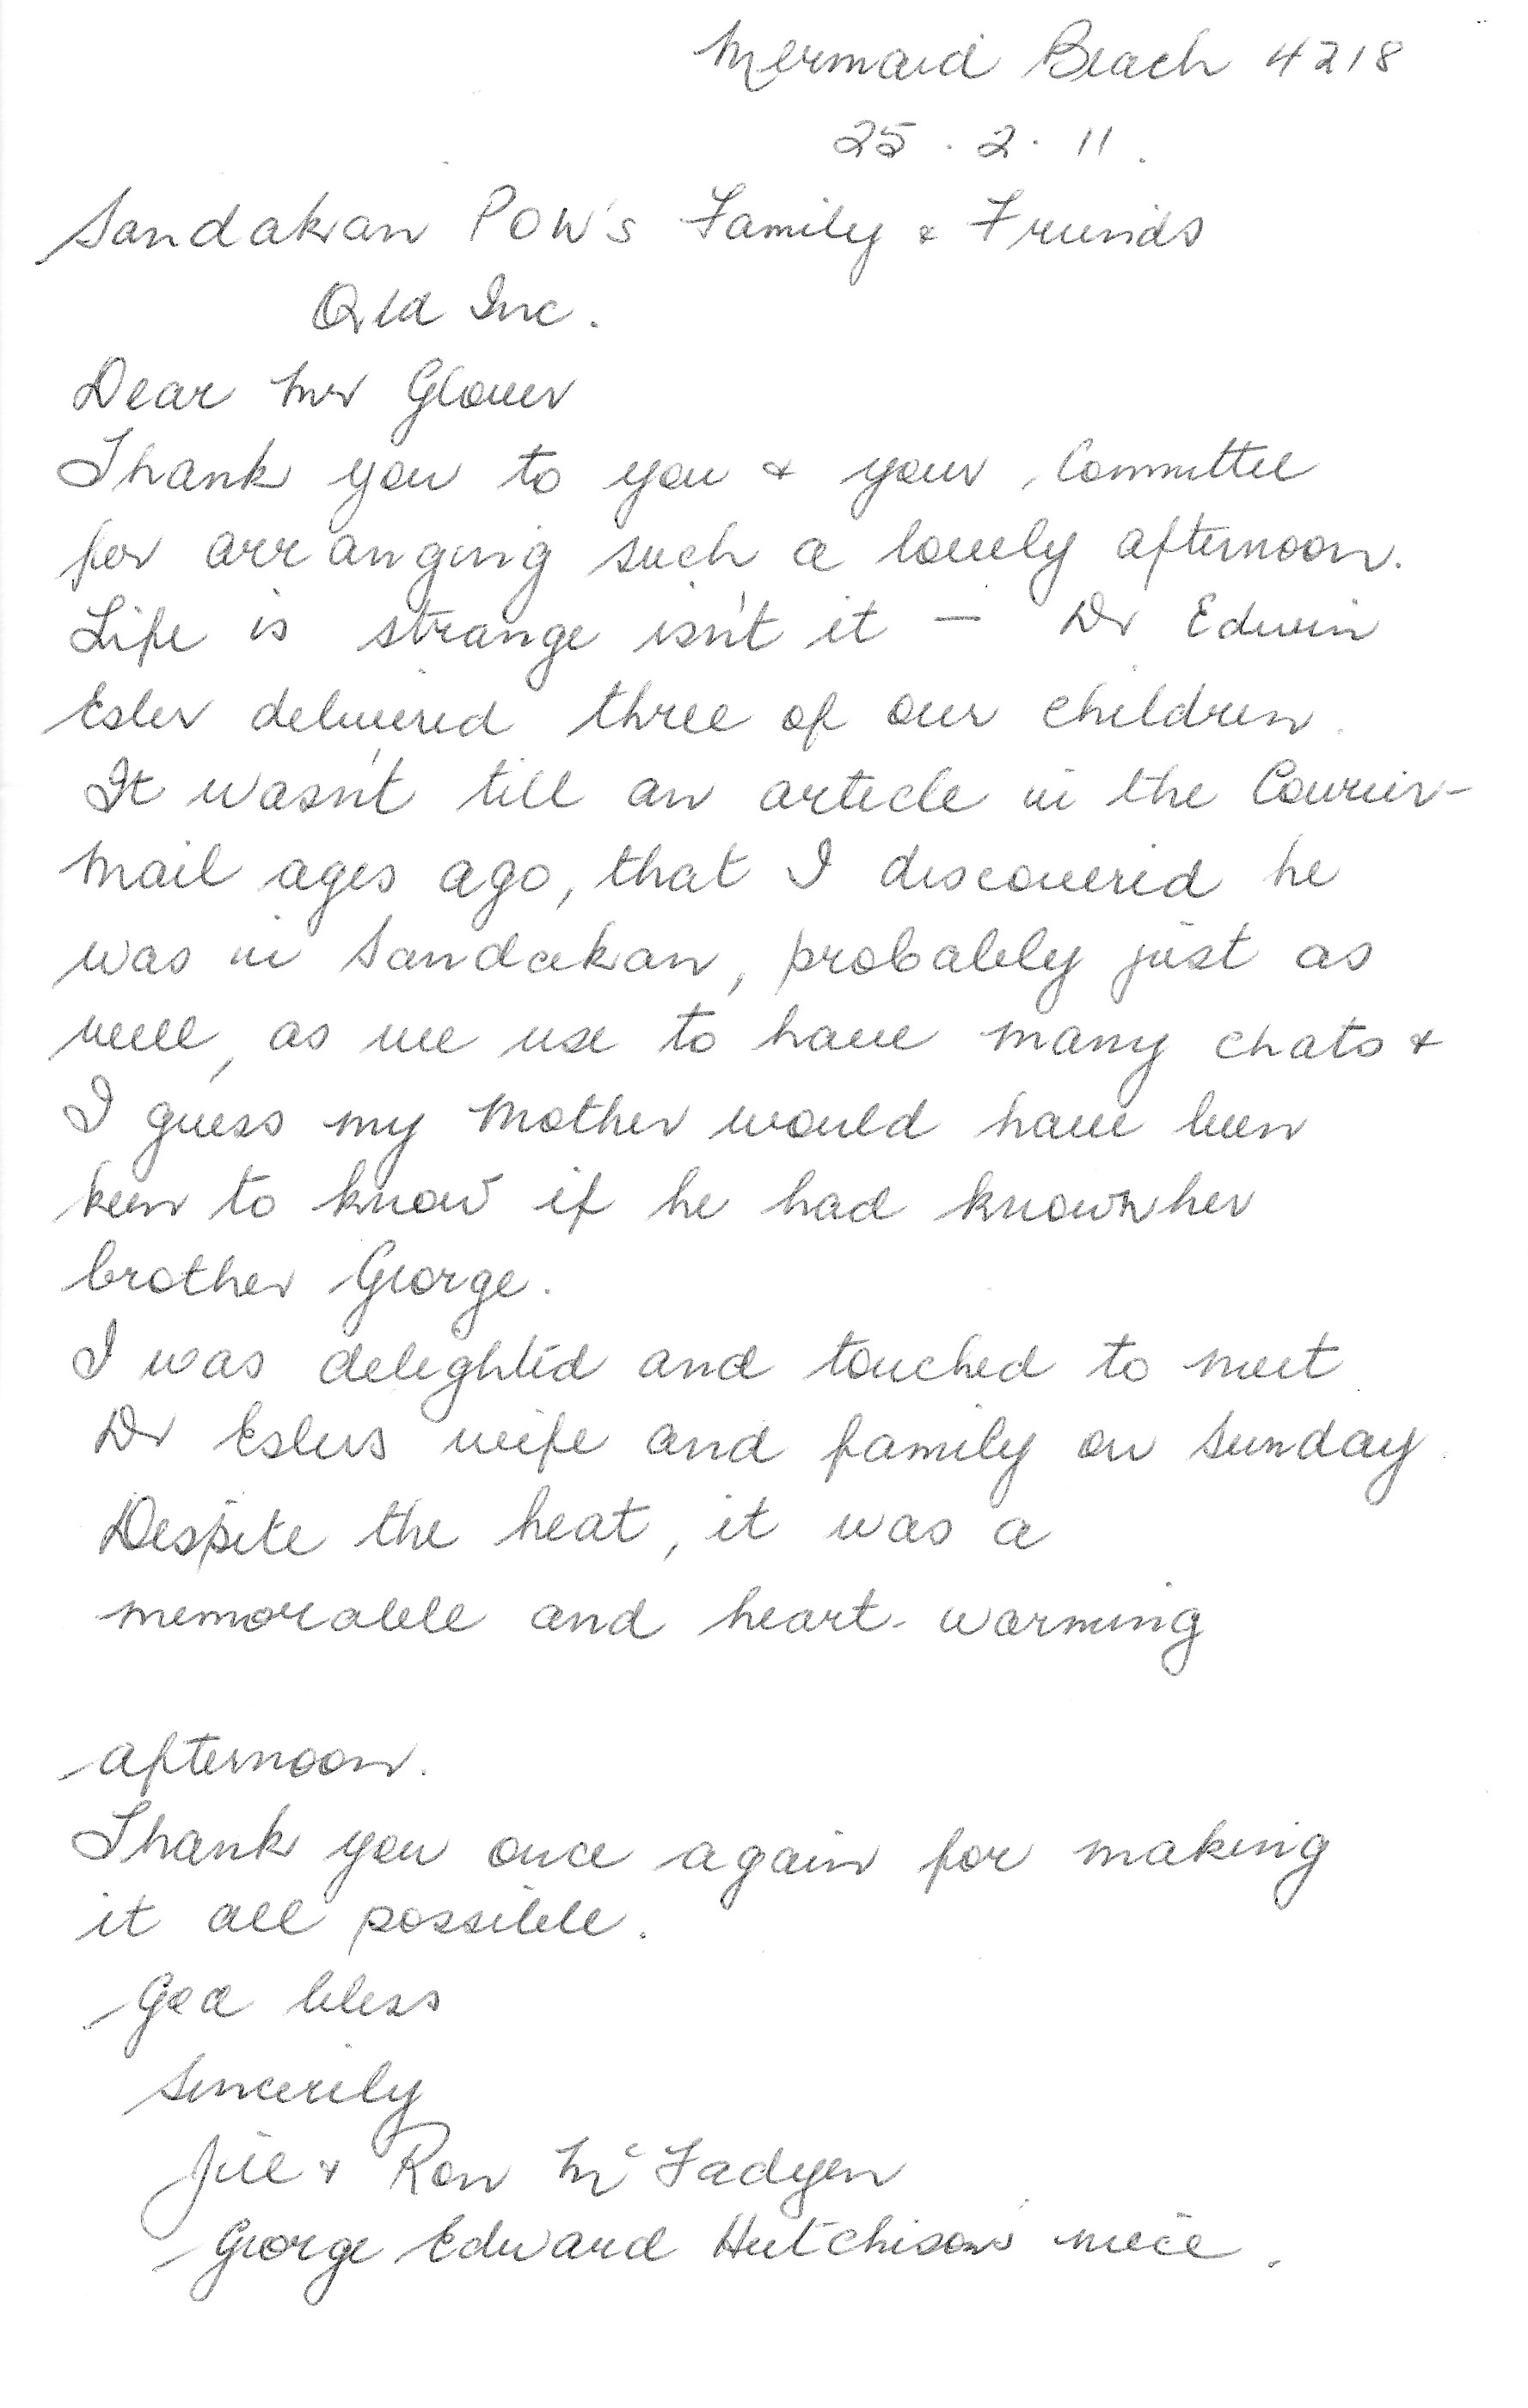 Mermaid Beach 4218
25 . 2 . 11 .
Sandakan POW's Family & Friends
Qld Inc.
Dear Mr Glover
Thank you to you & your Committee
for arranging such a lovely afternoon.
Life is strange isn't it — Dr Edwin
Esler delivered three of our children.
It wasn't till an article in the Courier-
Mail ages ago, that I discovered he
was in Sandakan, probably just as
well, as we use to have many chats &
I guess my Mother would have been
keen to know if he had known her
brother George.
I was delighted and touched to meet
Dr Eslers wife and family on Sunday.
Despite the heat, it was a
memorable and heart-warming
afternoon.
Thank you once again for making
it all possible.
God bless
Sincerely
Jill & Ron McFadyen
George Edward Hutchison's niece.